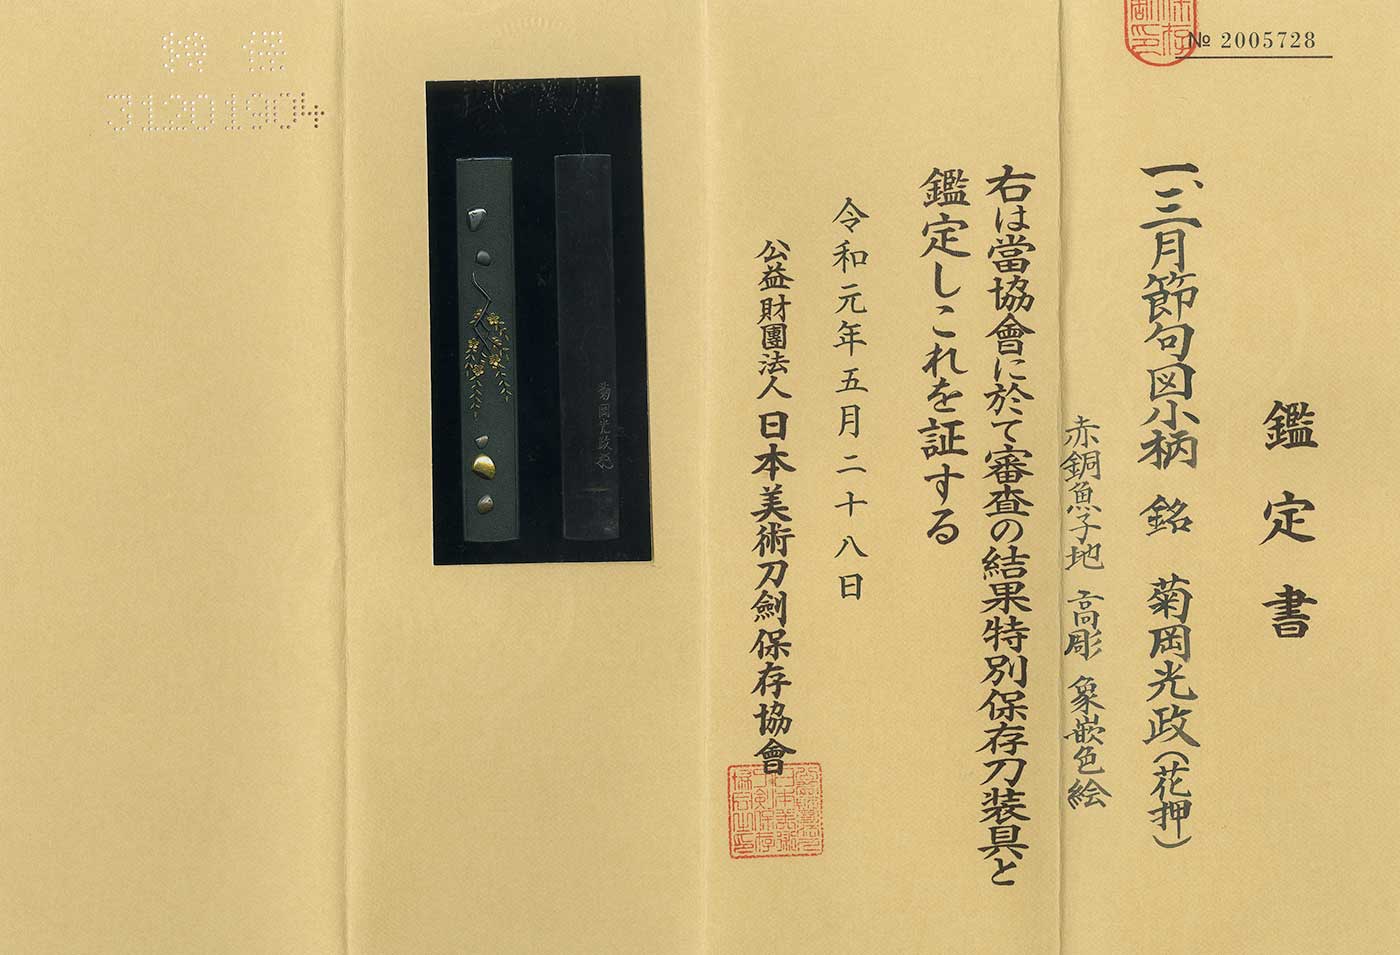 № 2005728
鑑定書
一、三月節句図小柄 銘 菊岡光政(花押)
赤銅魚子地 高彫 象嵌色絵
右は當協會に於て審査の結果特別保存刀装具と
鑑定しこれを証する
令和元年五月二十八日
公益財團法人 日本美術刀劍保存協會
菊岡光政
特保
31201904